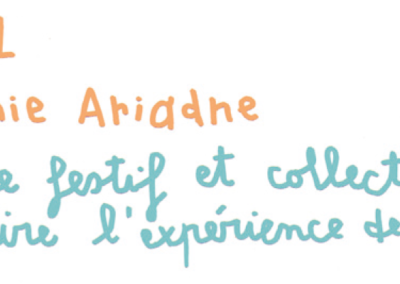 L
nie Ariadne
e festif et collect
ire l'expérience de